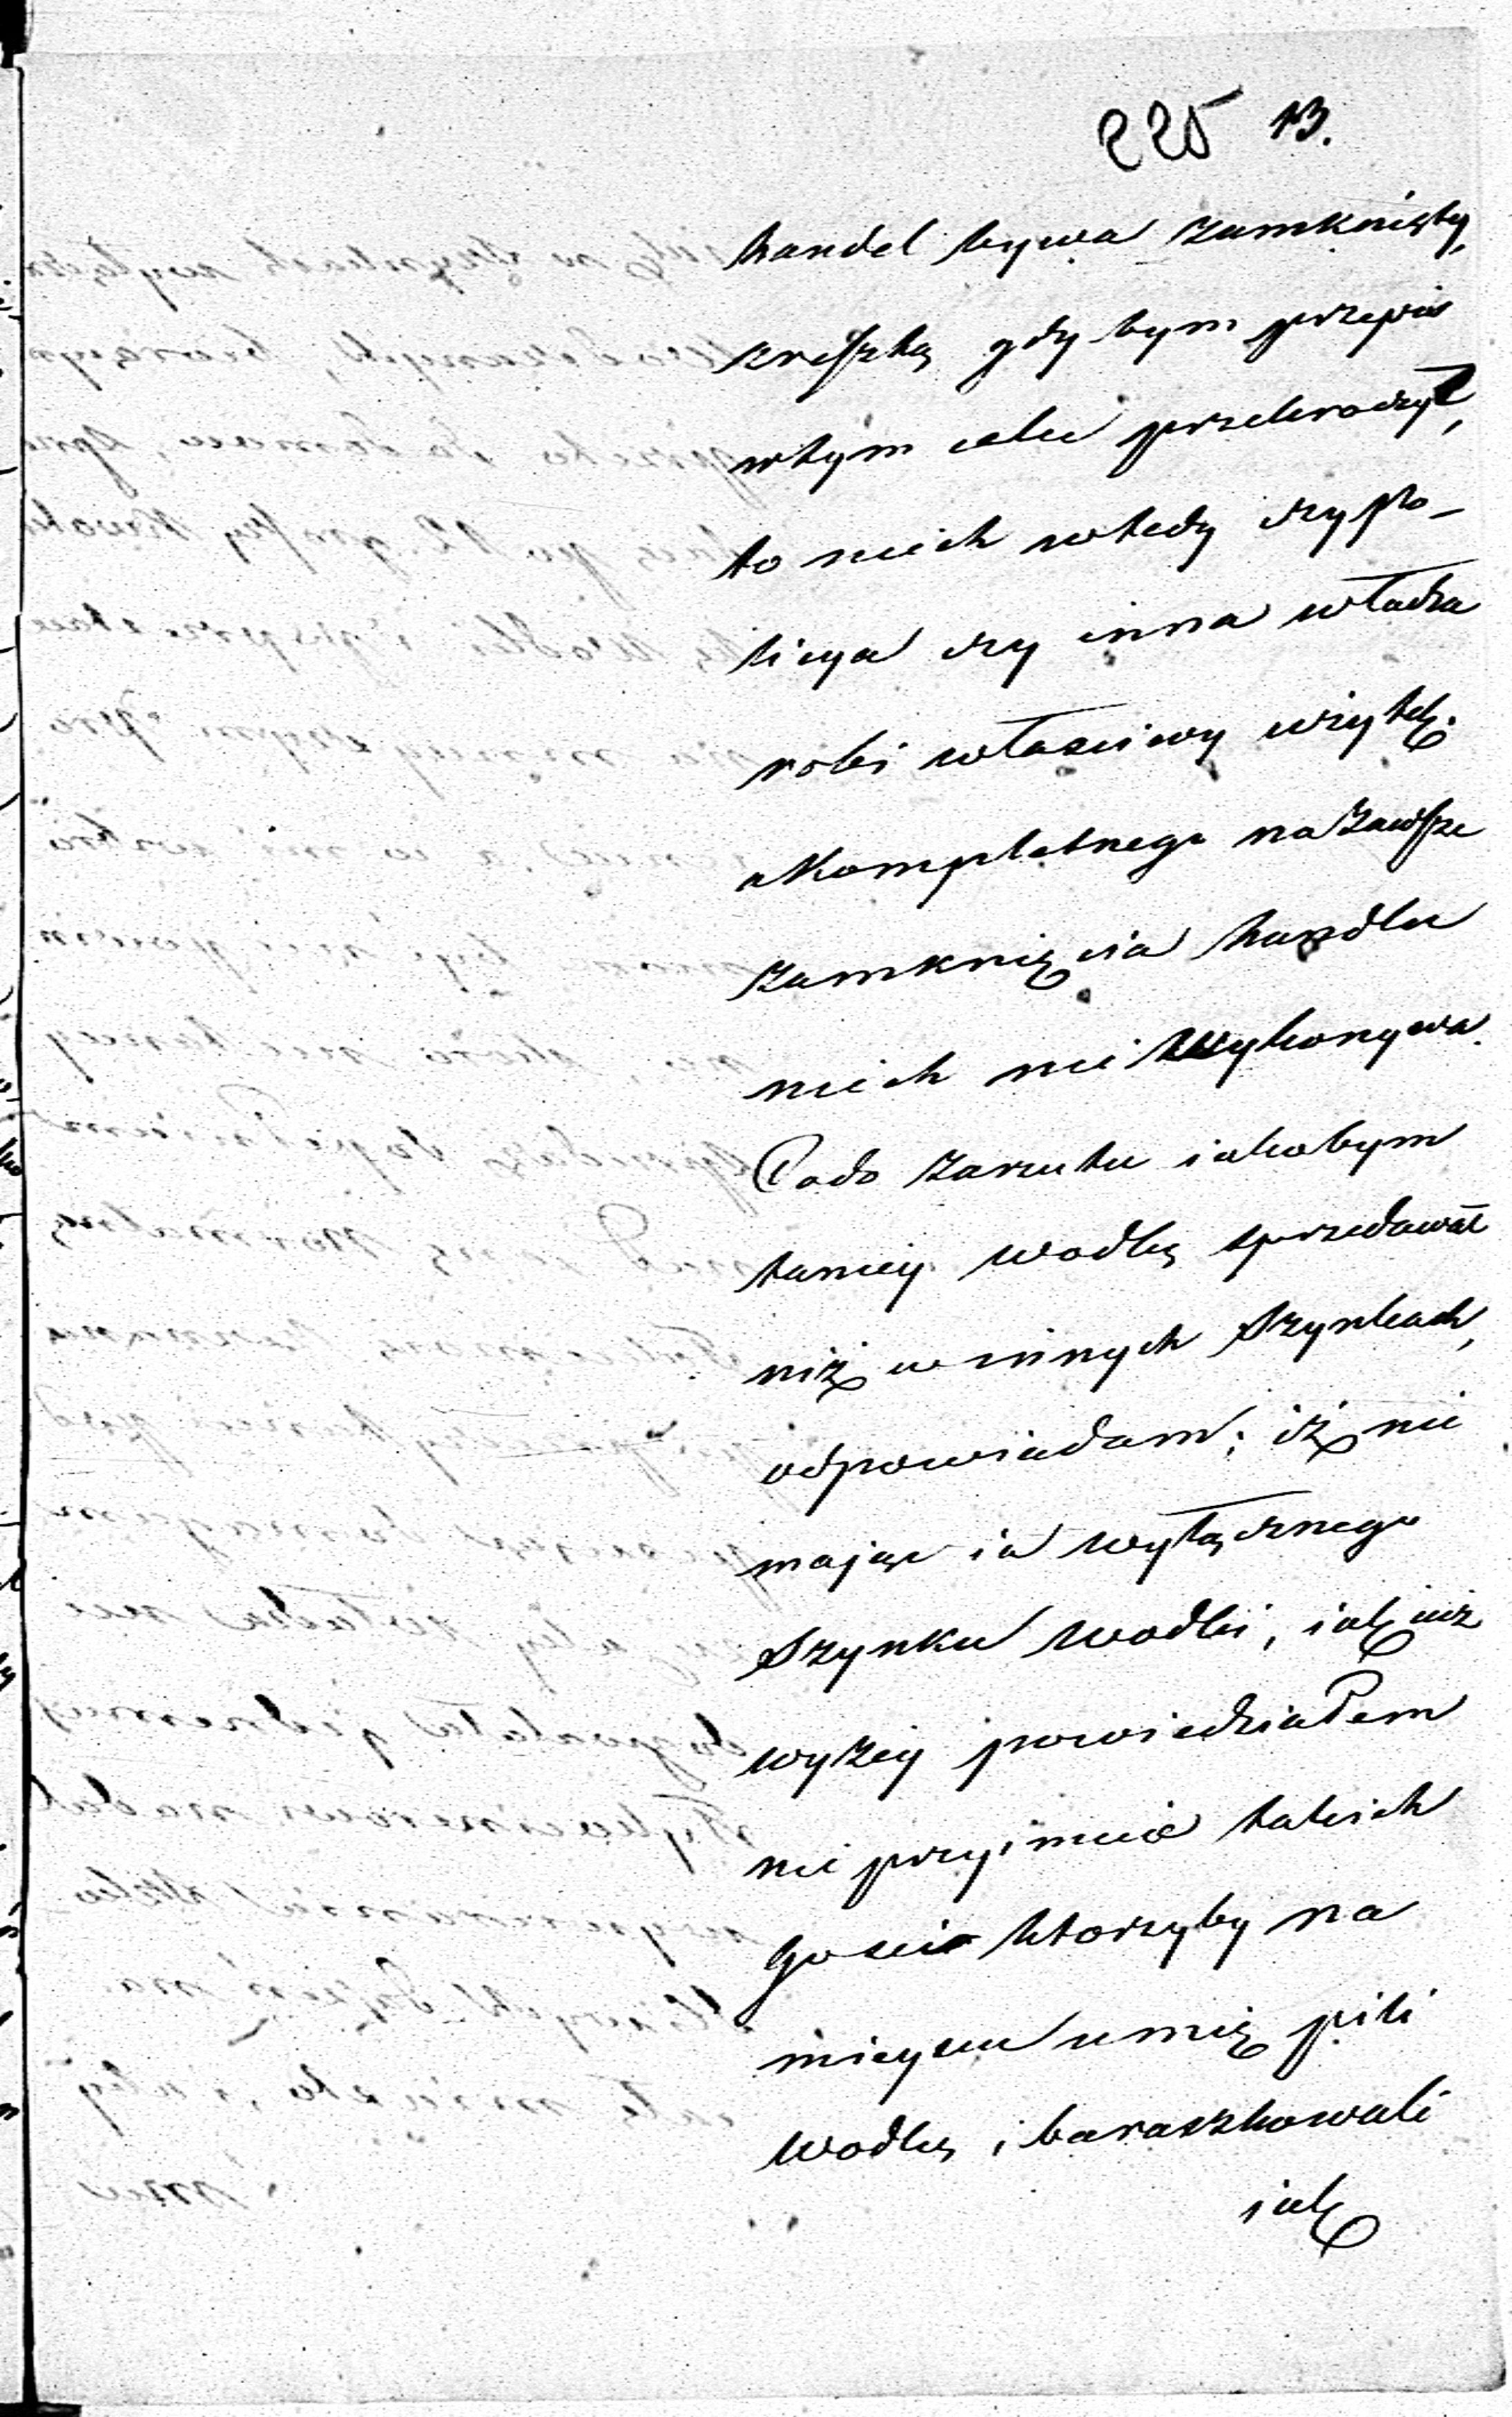 225 13.
handel bywa zamknięty,
zresztą gdy bym przepis
wtym celu przekroczył,
to niech wtedy czy po-
licya czy inna władza
robi właściwy użytek.
a kompletnego na zawsze
zamknięcia handlu
niech nie wykonywa.
Codo zarzutu iakobym
taniey wodkę sprzedawał
niż w innych Szynkach,
odpowiadam; iż nie
mając ia wyłącznego
Szynku wodki, iak iuż
wyżey powiedziałem
nie przyimuie takich
gosci ktorzyby na
mieyscu umię pili
wodkę i baraszkowali
iak